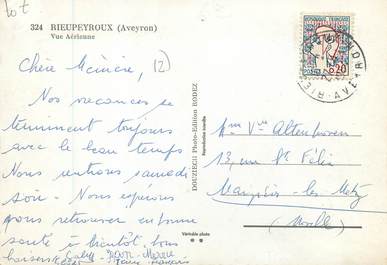 lot
324 RIEUPEYROUX (Aveyron)
Vue Aérienne
Chère (12)
Nos vacances se
terminent toujours
avec le beau temps
Nous rentrons samedi
soir - Nous espérons
vous retrouver en bonne
santé à bientôt, tous
baisers Jean-Marie
DOUZIECH Photo-Edition RODEZ
Reproduction interdite
Véritable photo
POSTES 0,20
Mme Vve Altenhoven
13, rue St Félix
Mangistes-les-Metz
(Moselle)